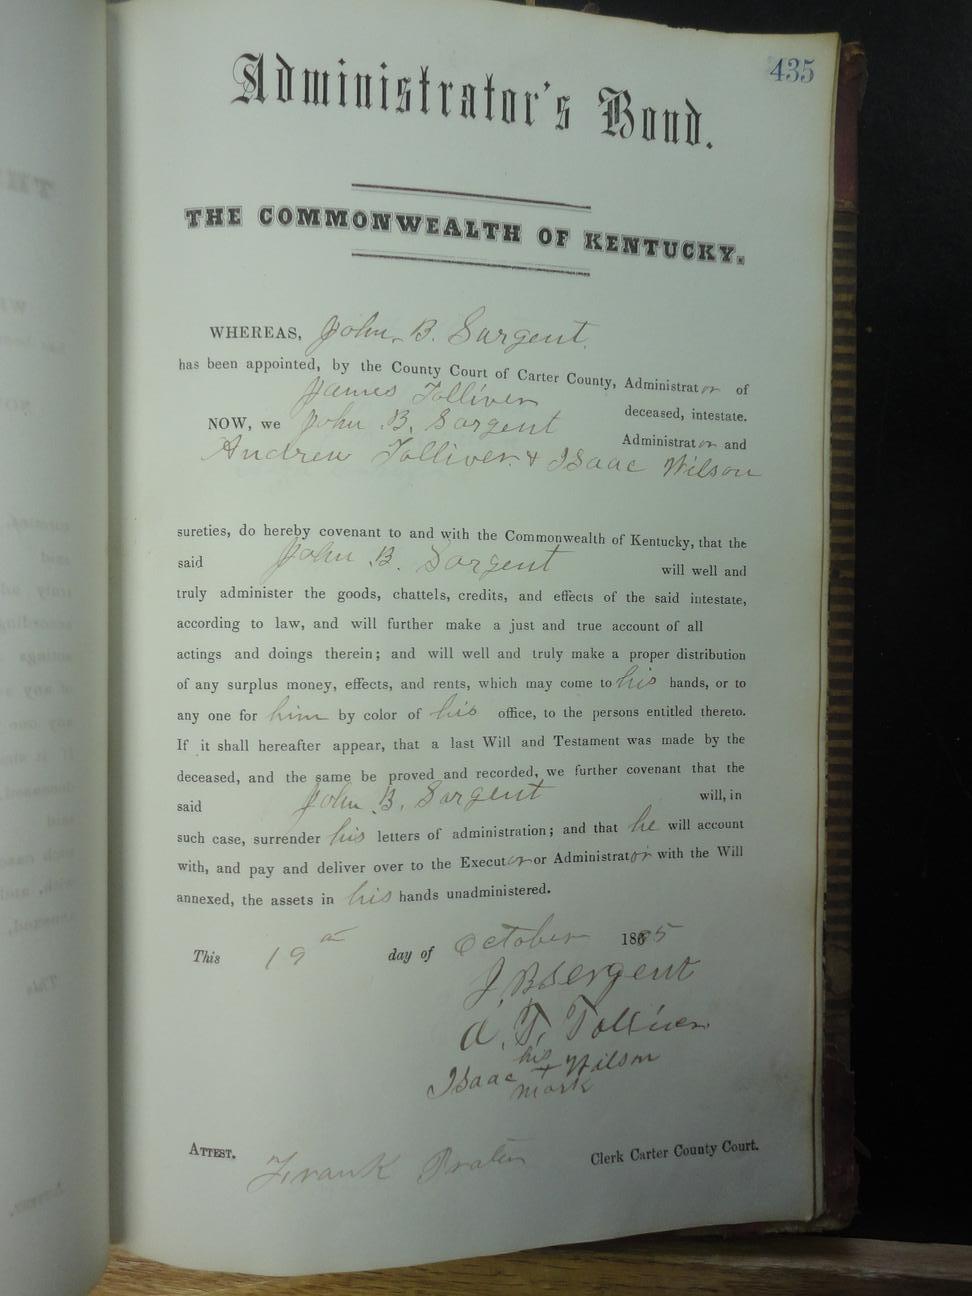 435
Administrator's Bond.
THE COMMONWEALTH OF KENTUCKY.
WHEREAS, John B. Sargent
has been appointed, by the County Court of Carter County, Administrator of
James Tolliver deceased, intestate.
NOW, we John B. Sargent Administrator and
Andrew Tolliver & Isaac Wilson
sureties, do hereby covenant to and with the Commonwealth of Kentucky, that the
said John B. Sargent will well and
truly administer the goods, chattels, credits, and effects of the said intestate,
according to law, and will further make a just and true account of all
actings and doings therein; and will well and truly make a proper distribution
of any surplus money, effects, and rents, which may come to his hands, or to
any one for him by color of his office, to the persons entitled thereto.
If it shall hereafter appear, that a last Will and Testament was made by the
deceased, and the same be proved and recorded, we further covenant that the
said John B. Sargent will, in
such case, surrender his letters of administration; and that he will account
with, and pay and deliver over to the Executor or Administrator with the Will
annexed, the assets in his hands unadministered.
This 19th day of October 1885
J. B Sergent
A. T. Tolliver
his
Isaac + Wilson
mark
ATTEST. Frank Prater Clerk Carter County Court.